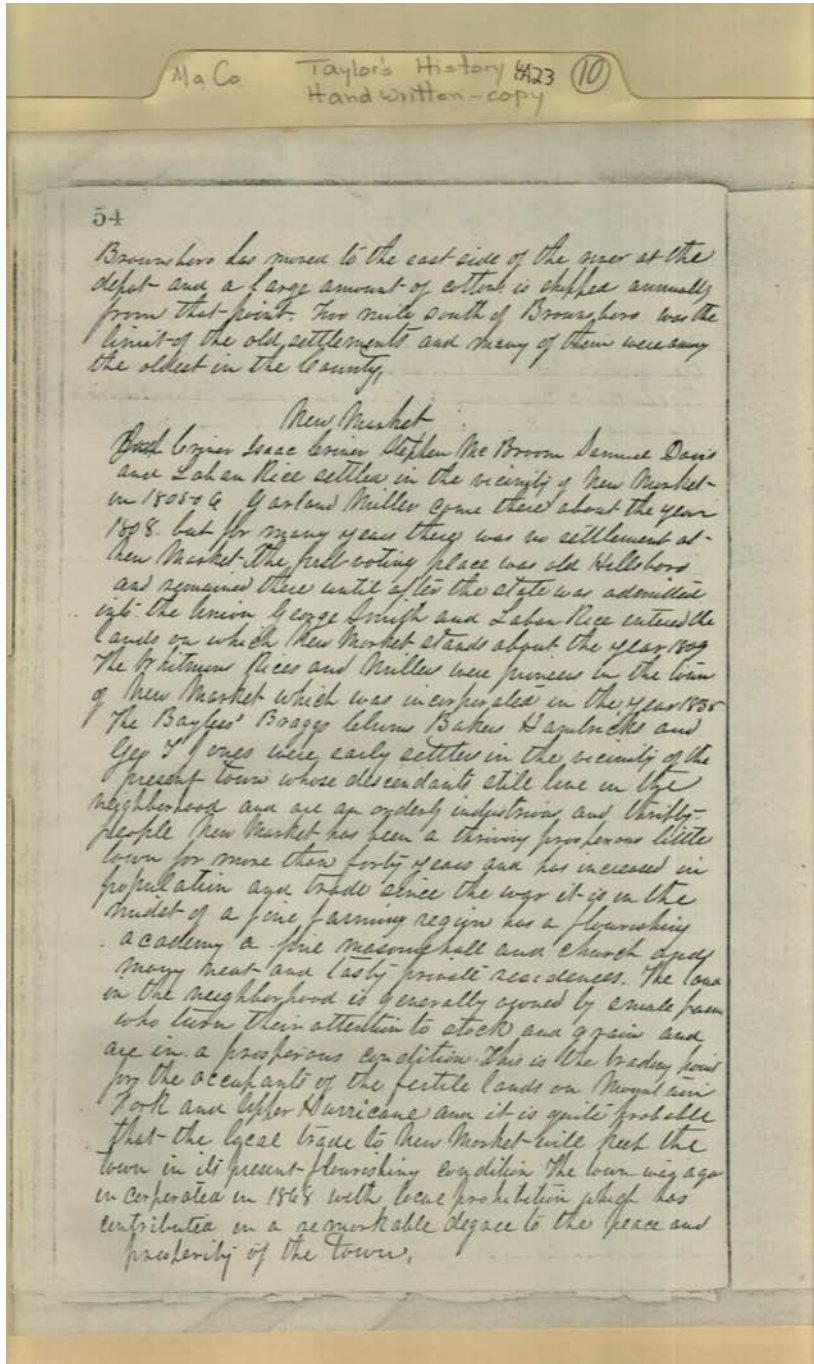 Ma Co Taylor's History 4A23 10
Handwritten-copy
54
Brownsboro has moved to the east side of the river at the
depot and a large amount of cotton is shipped annually
from that point. Two mile south of Brownsboro was the
limit of the old settlements and many of them were among
the oldest in the County,
New Market
Criner Isaac Criner Stephen McBroom Samuel Davis
and Laban Rice settled in the vicinity of New Market
in 1805-06 Garland Miller come there about the year
1808. but for many years there was no settlement at
New Market. The first voting place was old Hillsboro
and remained there until after the state was admitted
into the Union George Smith and Laban Rice entered the
lands on which New Market stands about the year 1809
The Whitmans Rices and Millers were pioneers in the town
of New Market which was incorporated in the year 183
The Bayless' Braggs Clums Bakers Hambricks and
Geo T Jones were early settlers in the vicinity of the
present town whose descendants still live in the
neighborhood and are an orderly industrious and thrifty
people New Market has been a thriving prosperous little
town for more than forty years and has increased in
population and trade since the war it is in the
midst of a fine farming region has a flourishing
academy a fine masonic hall and church and
many neat and tasty private residences. The land
in the neighborhood is generally owned by small
who turn their attention to stock and grain and
are in a prosperous condition. This is the trading point
for the occupants of the fertile lands on Mountain
Fork and Upper Hurricane and it is quite probable
that the local trade to New Market will keep the
town in its present flourishing condition The town was again
incorporated in 1868 with local prohibition which has
contributed in a remarkable degree to the peace and
prosperity of the town,